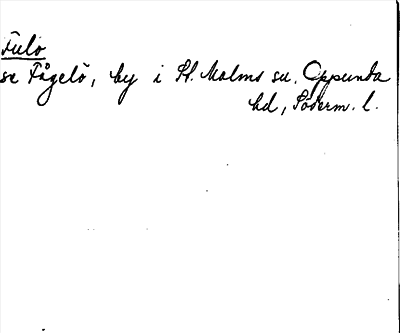 Fulö
se Fågelö, by i St. Malms sn. Oppunda
hd, Söderm. l.